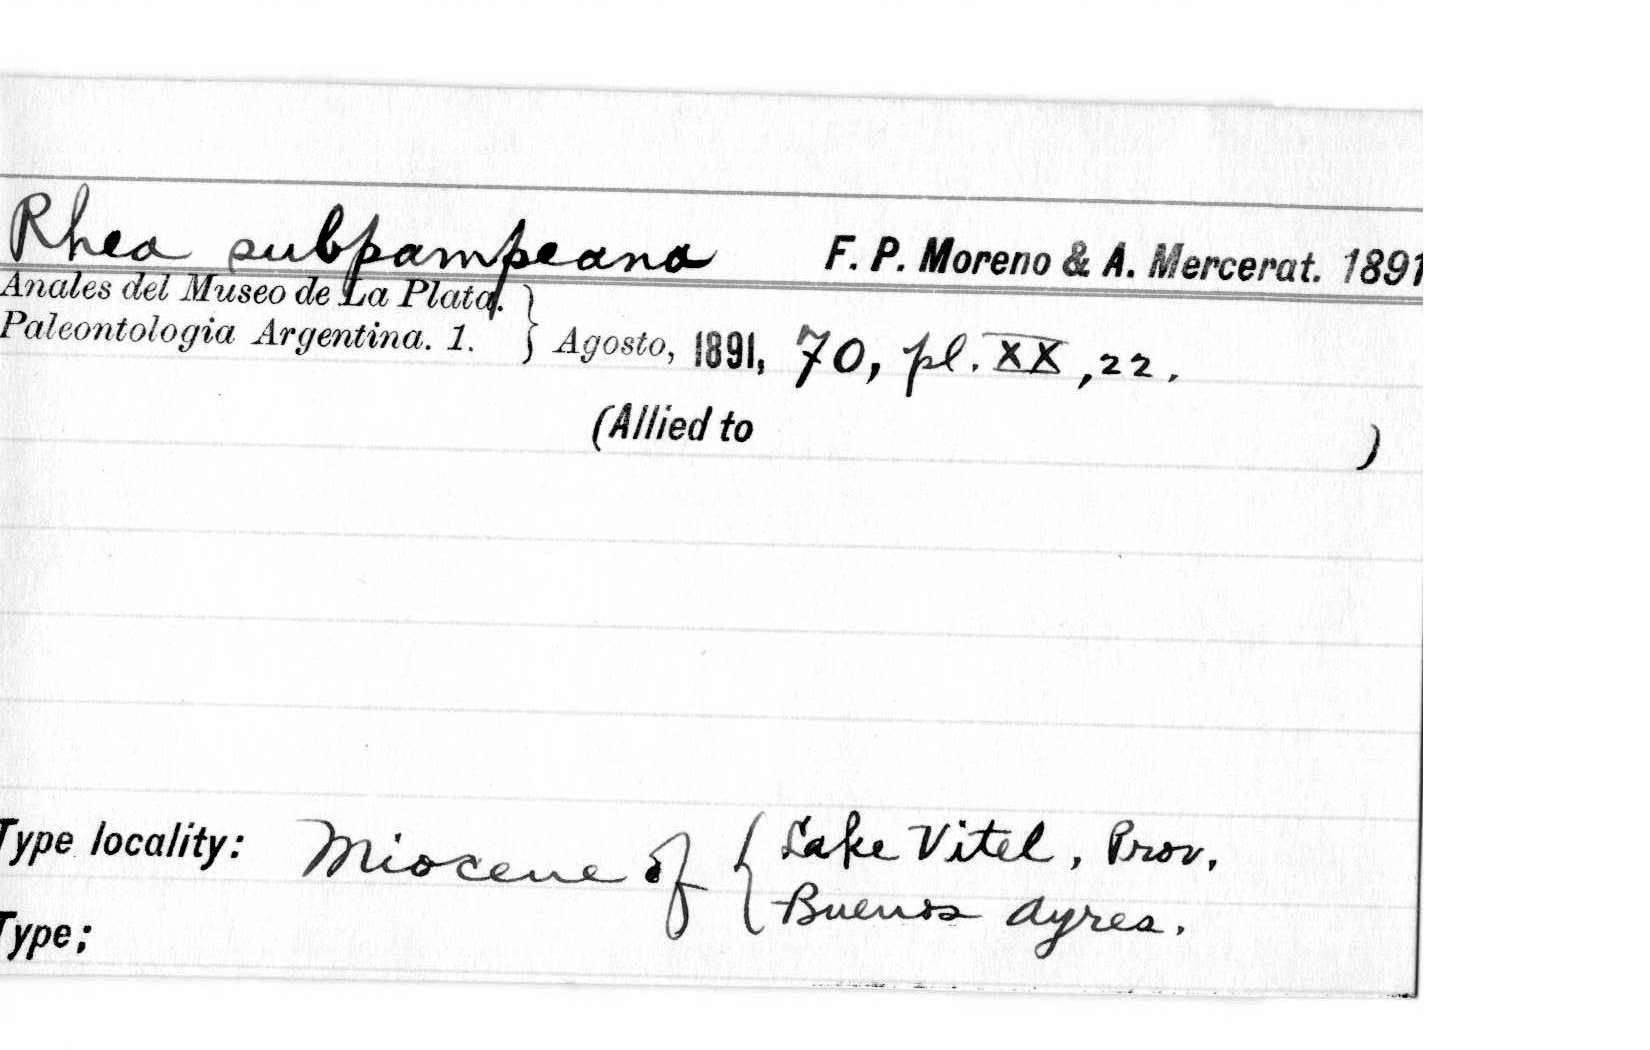 Rhea subpampeana F. P. Moreno & A. Mercerat. 1891
Anales del Museo de La Plata.
Paleontologia Argentina. 1. } Agosto, 1891, 70, pl. XX, 22.
(Allied to )
Type locality: Miocene of { Lake Vitel, Prov.
Buenos Ayres.
Type;